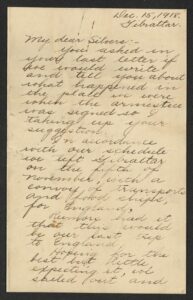 Dec. 15, 1918.
Gibraltar.
My dear Silvers:-
You asked in
your last letter if
I would write
and tell you about
what happened in
the place we were
when the armistice
was signed so I
taking up your
suggestion.
In accordance
with our schedule
we left Gibraltar
on the fifth of
November, with a
convoy of transports
and food ships,
for England.
Rumor had it
that this would
be our last trip
to England.
Hoping for the
best but little
expecting it, we
sailed out and